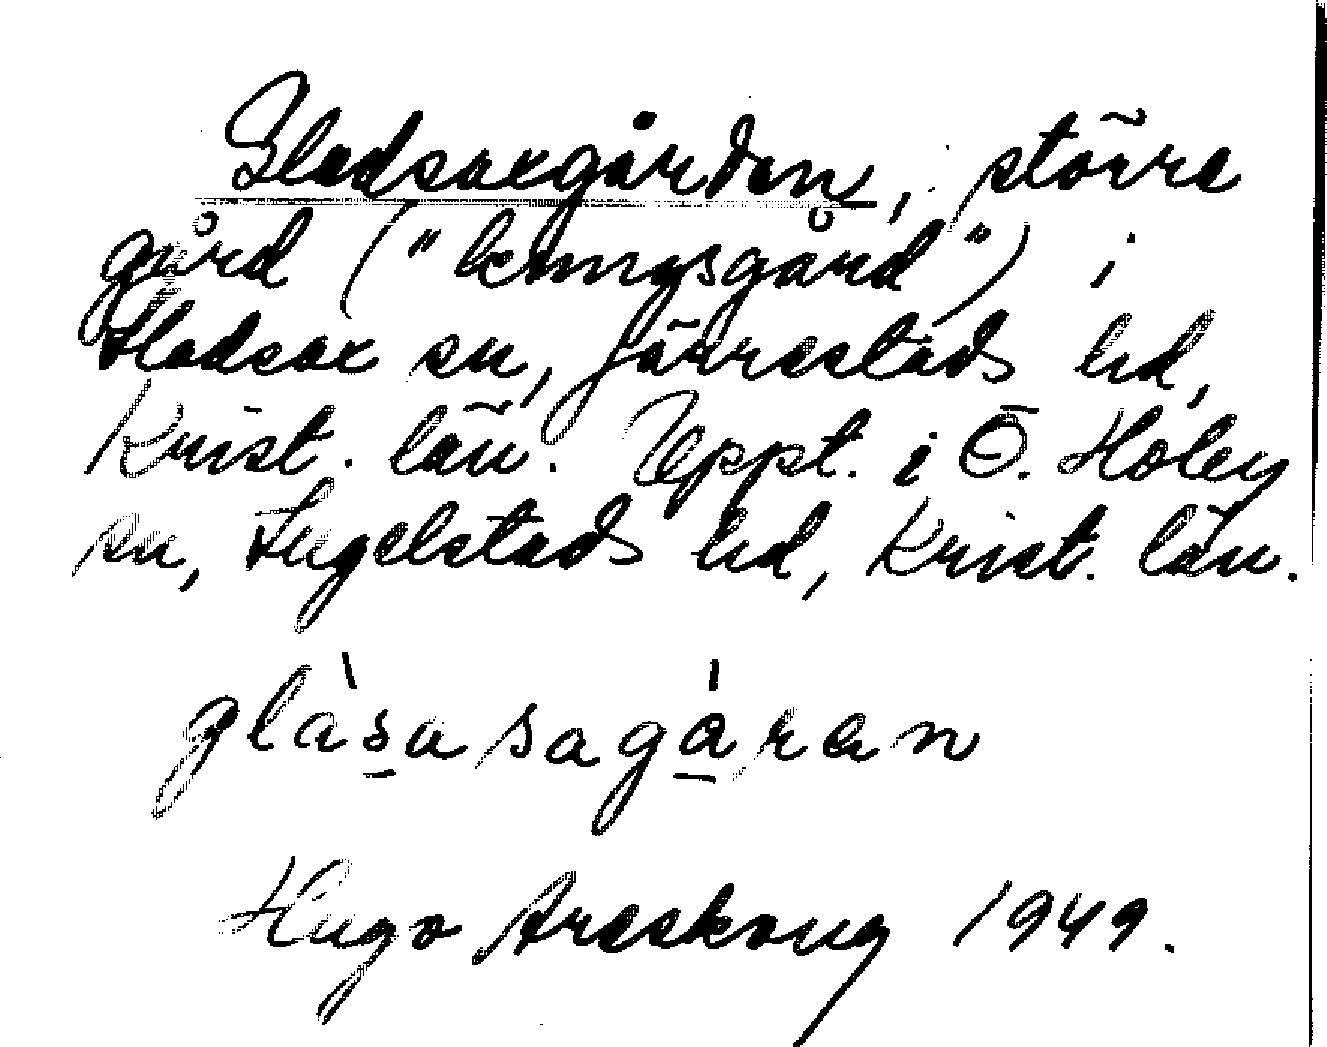 Gladsaxgården, större
gård ("kungsgård") i
Gladsax sn, Järrestads hd,
Krist. län. Uppt. i Ö. Hoby
sn, Ingelstads hd, Krist. län.
Hugo Areskoug 1949.